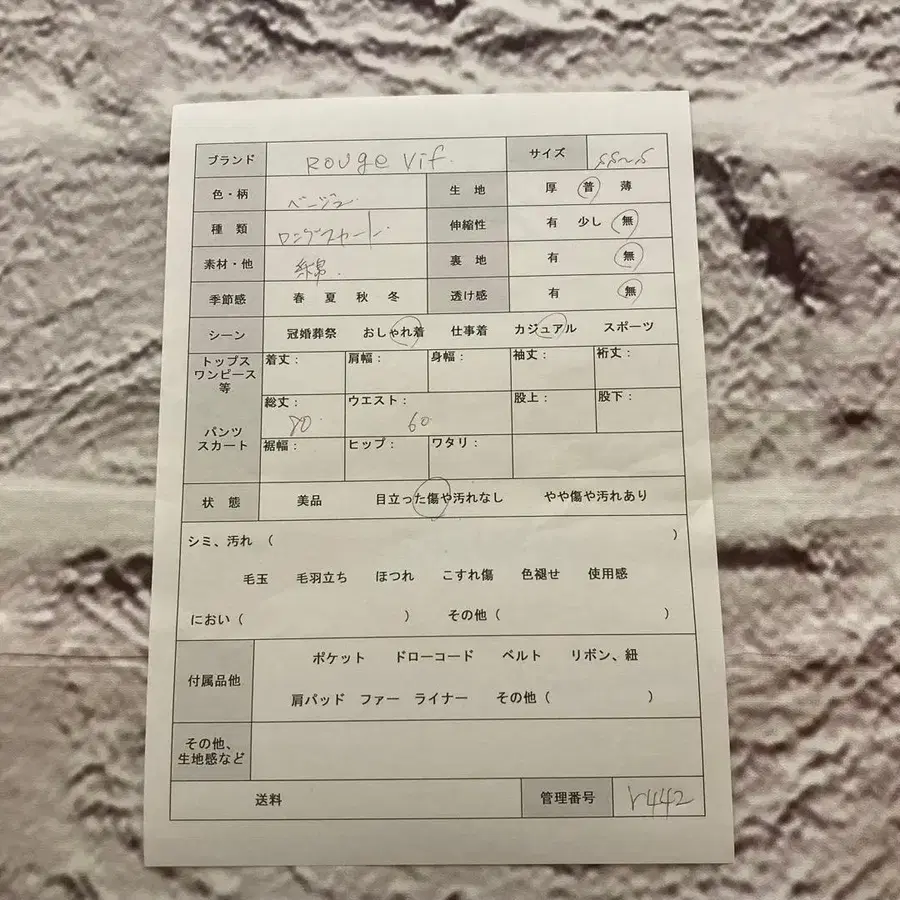 ブランド Rouge vif. サイズ SS~S
色・柄 ベージュ 生地 厚 普 薄
種類 ロングスカート 伸縮性 有 少し 無
素材・他 綿. 裏地 有 無
季節感 春 夏 秋 冬 透け感 有 無
シーン 冠婚葬祭 おしゃれ着 仕事着 カジュアル スポーツ
トップス ワンピース 等 着丈: 肩幅: 身幅: 袖丈: 裄丈:
パンツ スカート 総丈: 80 ウエスト: 60 股上: 股下:
裾幅: ヒップ: ワタリ:
状態 美品 目立った傷や汚れなし やや傷や汚れあり
シミ、汚れ ( )
毛玉 毛羽立ち ほつれ こすれ傷 色褪せ 使用感
におい ( ) その他 ( )
付属品他 ポケット ドローコード ベルト リボン、紐
肩パッド ファー ライナー その他 ( )
その他、
生地感など
送料 管理番号 r442